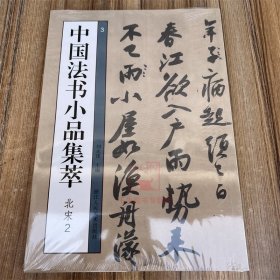 3
中国法书小品集萃
北宋2
年子病起须已白
春江欲入户雨势来
不已雨小屋如渔舟濛